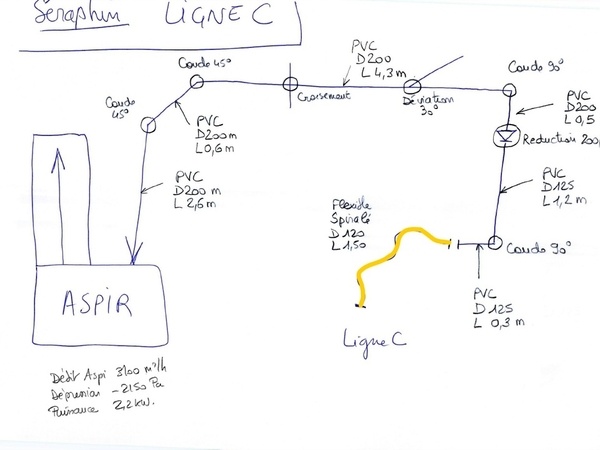 Séraphin LIGNE C
Coude 45°
Coude
45°
PVC
D200m
L0,6m
PVC
D200 m
L 2,6m
Croisement
PVC
D200
L 4,3 m
Déviation
30°
Coude 90°
PVC
D200
L 0,5
Reduction 200,
PVC
D125
L 1,2 m
Coude 90°
PVC
D125
L 0,3 m
Flexible
Spiralé
D120
L1,50
Ligne C
ASPIR
Débit Aspi 3100 m³/h
Dépression -2150 Pa
Puissance 2,2 kW.